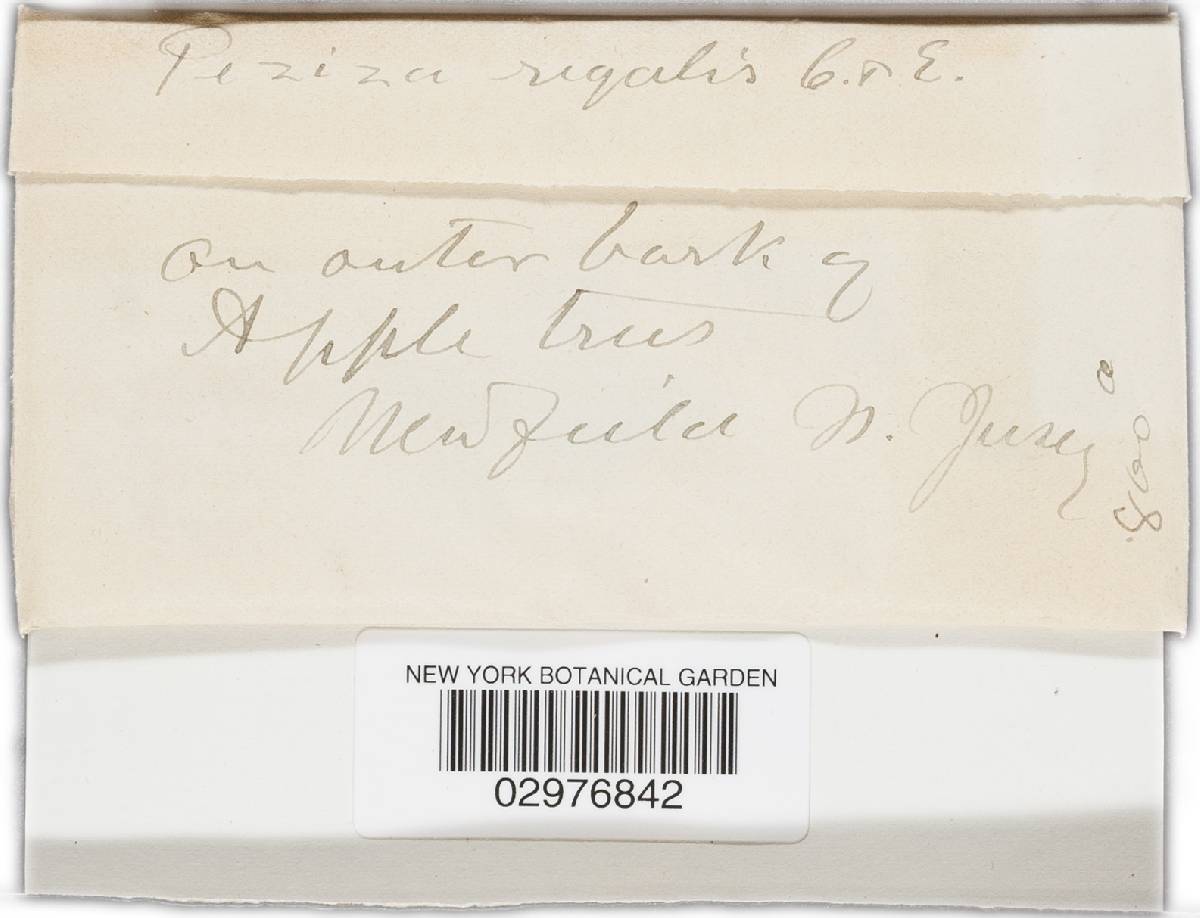 Peziza regalis C. & E.
on outer bark of
Apple trees
Newfield N. Jersey
NEW YORK BOTANICAL GARDEN
02976842